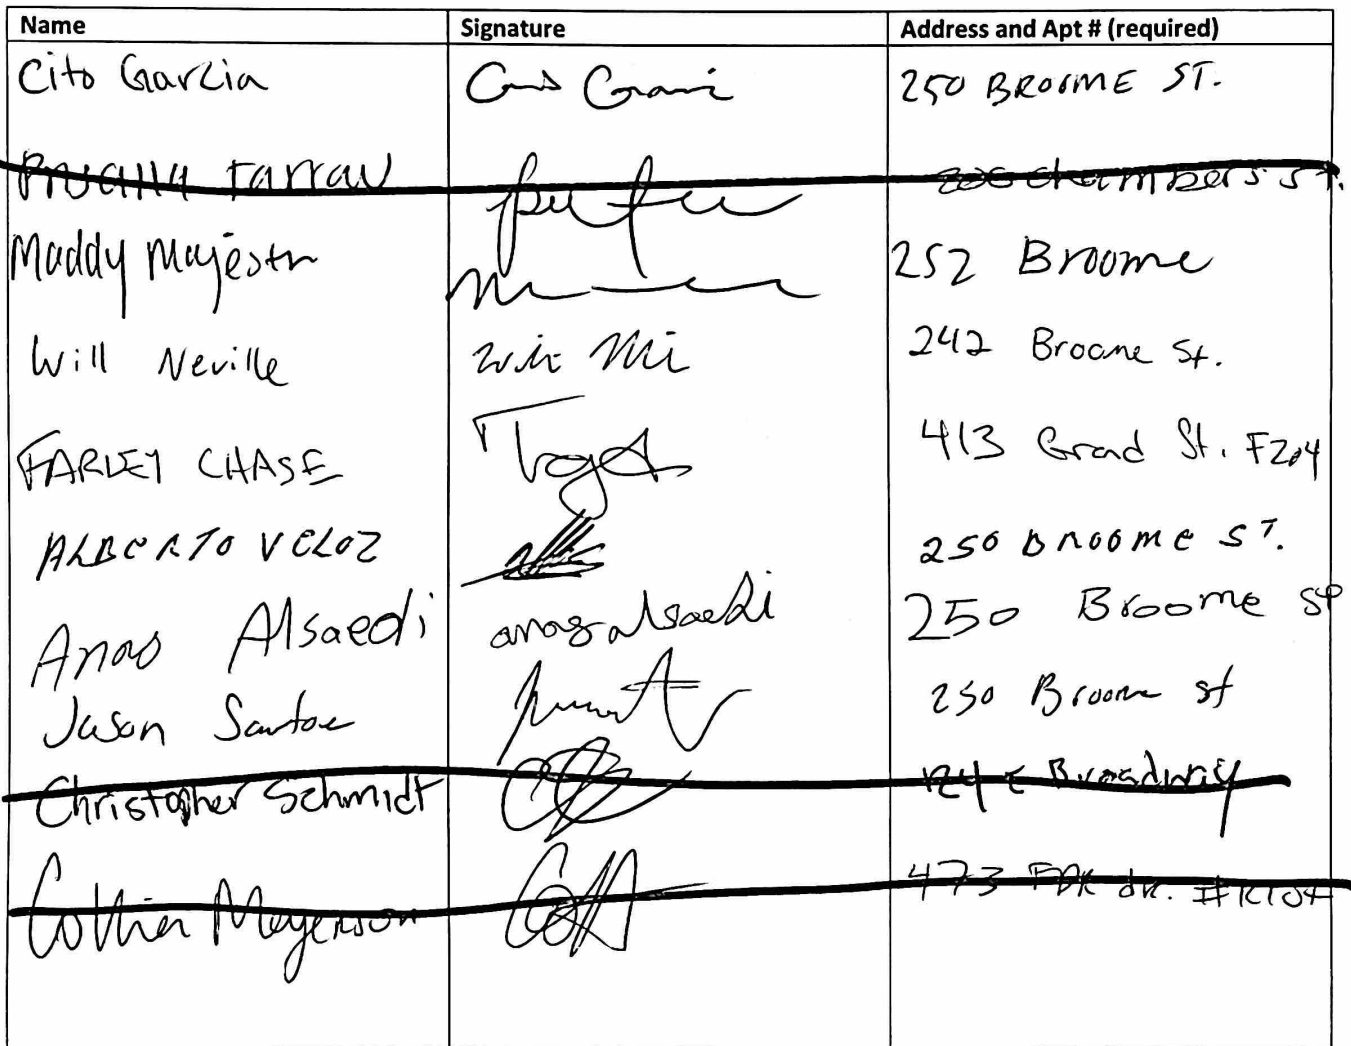 Name Signature Address and Apt # (required)
Cito Garcia 250 BROOME ST.
Farrau Chambers St.
Maddy Majestr 252 Broome
Will Neville 242 Broome St.
FARLEY CHASE 413 Grand St. F204
ALBERTO VELOZ 250 BROOME ST.
Anas Alsaedi anas alsaedi 250 Broome St
Jason Santos 250 Broome st
Christopher Schmidt E Broadway
Collier Meyerson 473 FDR dr. #K104